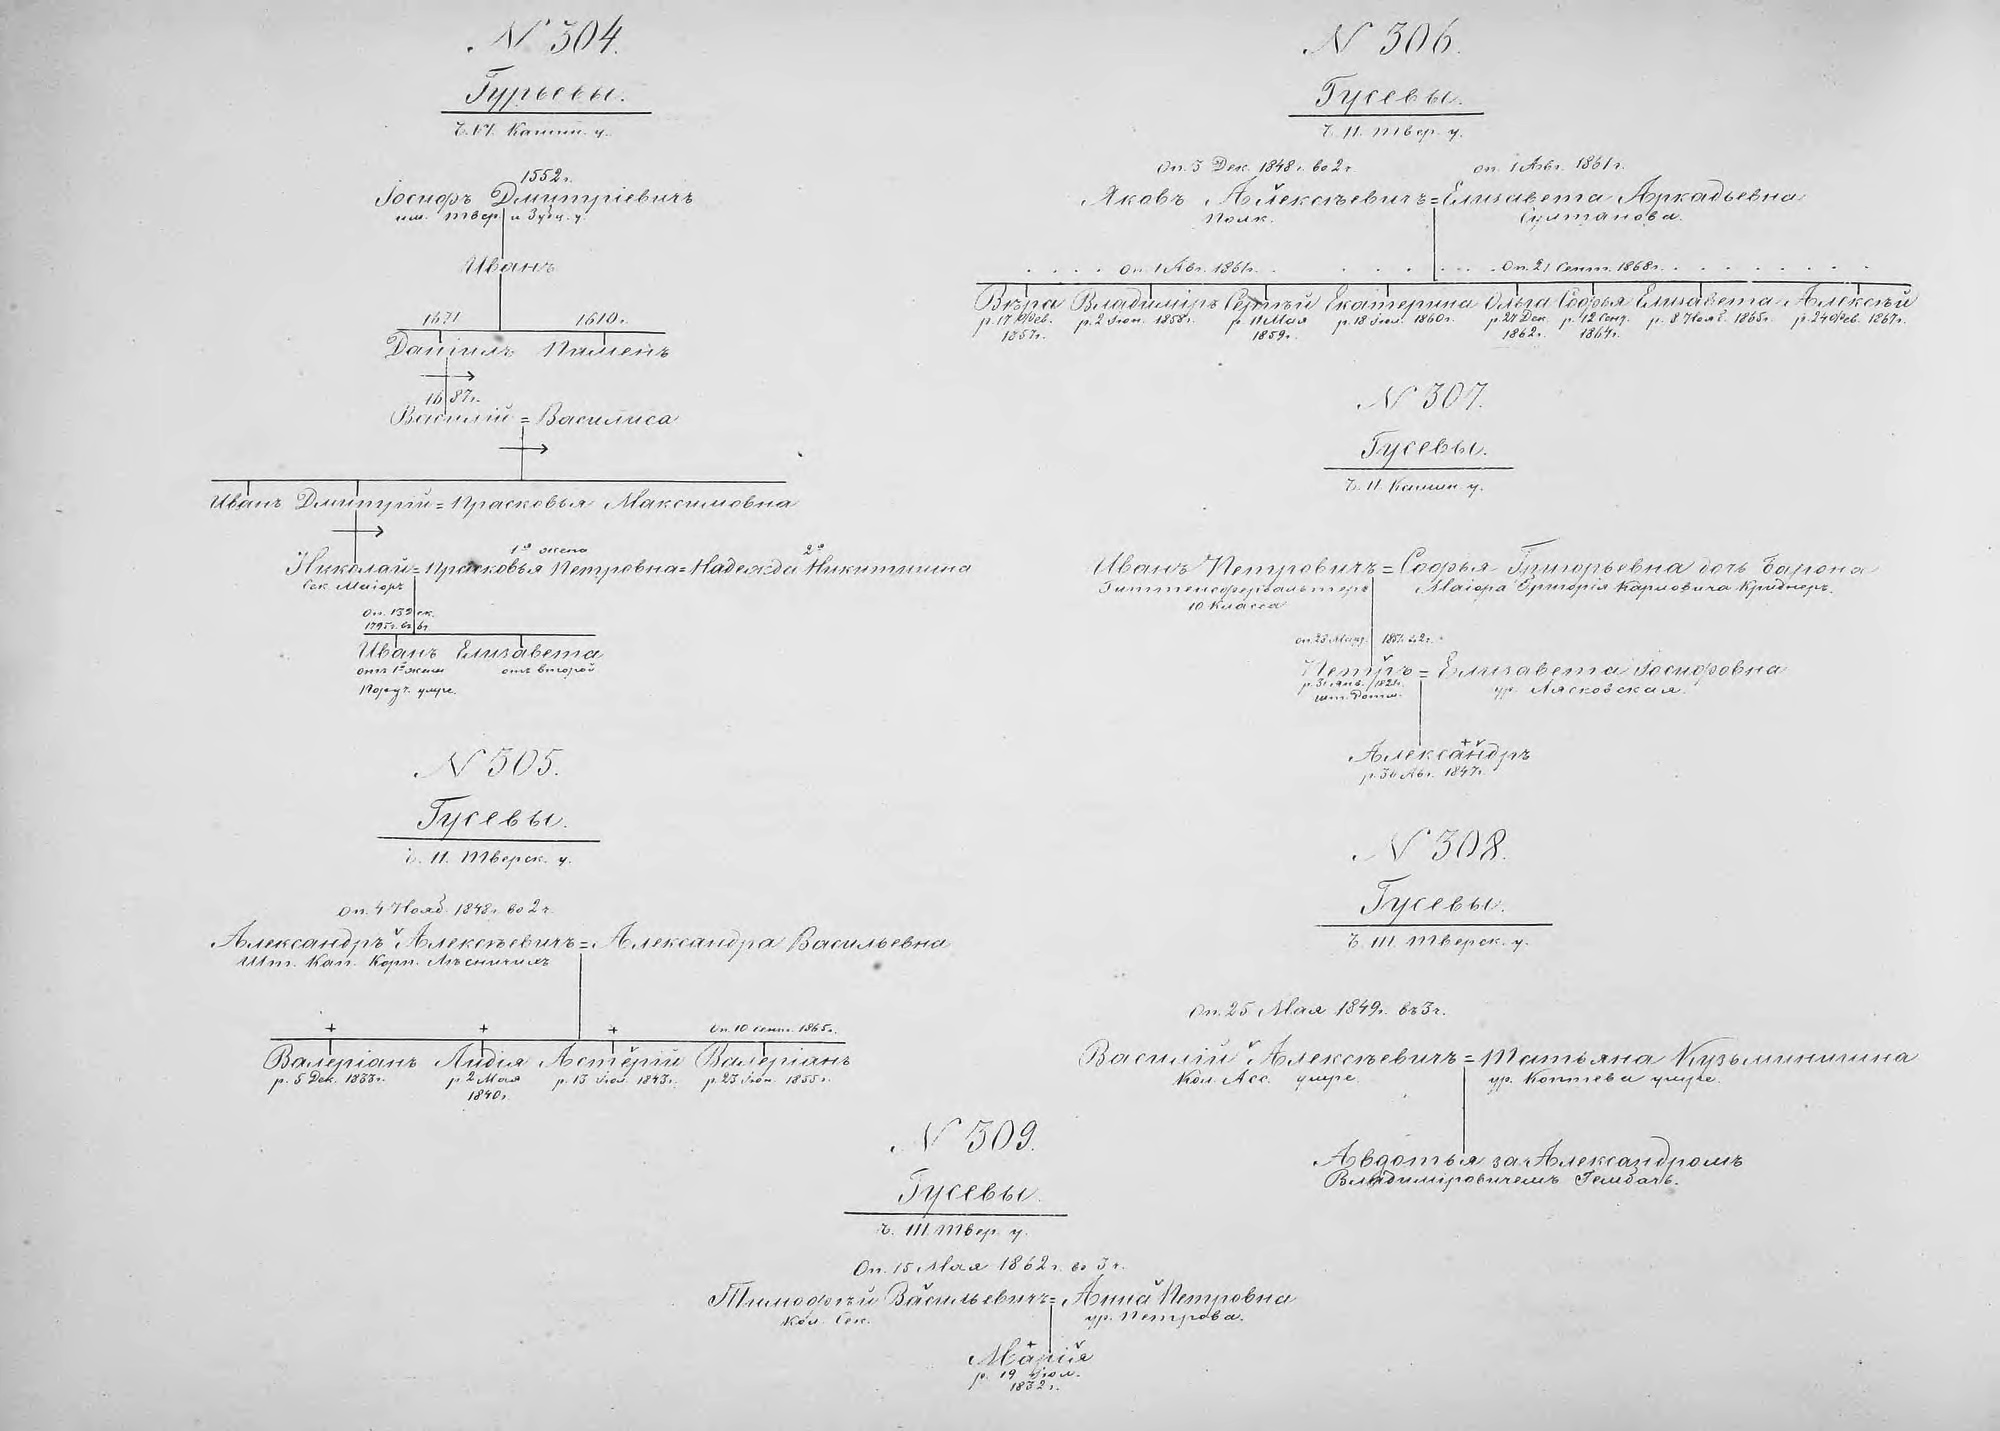 № 304.
Гурьевы.
Ч. VI. Кашин. у.
1552 г.
Іосифъ Дмитріевичъ
им. Твер. и Зубц. у.
Иванъ
1671 1610 г.
Даніилъ Пименъ
1687 г.
Василій = Василиса
Иванъ Дмитрій = Прасковья Максимовна
1я жена 2я
Николай = Прасковья Петровна = Надежда Никитишна
Сек. Маіоръ
Оп. 132 ск.
1795 г. въ 6 г.
Иванъ Елизавета
отъ 1й жены отъ второй
Поруч. умре.
№ 305.
Гусевы.
Ч. II. Тверск. у.
Оп. 4 Нояб. 1848 г. во 2 ч.
Александръ Алексѣевичъ = Александра Васильевна
Шт. Кап. Корп. Лѣсничихъ
+ + + Оп. 10 сент. 1865 г.
Валеріанъ Лидія Астерій Валеріанъ
р. 5 Дек. 1833 г. р. 2 Мая р. 13 Іюл. 1843 г. р. 23 Іюн. 1855 г.
1840 г.
№ 306.
Гусевы.
Ч. II. Твер. у.
Оп. 3 Дек. 1848 г. во 2 ч. оп. 1 Авг. 1861 г.
Яковъ Алексѣевичъ = Елизавета Аркадьевна
Полк. Султанова.
. . . . Оп. 1 Авг. 1861 г. . . . . . . . Оп. 21 Сент. 1868 г. . . . . . . . .
Вѣра Владиміръ Сергѣй Екатерина Ольга Софья Елизавета Алексѣй
р. 17 Фев. р. 2 Іюн. 1858 г. р. 11 Мая р. 18 Іюл. 1860 г. р. 27 Дек. р. 12 Сент. р. 8 Нояб. 1865 г. р. 24 Фев. 1867 г.
1857 г. 1859 г. 1862 г. 1864 г.
№ 307.
Гусевы.
Ч. II. Кашин. у.
Иванъ Петровичъ = Софья Григорьевна дочь Барона
Гиттенсфервальтеръ Маіора Григорія Карловича Криднеръ.
10 Класса
оп. 1851 во 2 ч.
Петръ = Елизавета Іосифовна
р. 31 Янв. 1821 г. ур. Лясковская.
Александръ
р. 30 Авг. 1847 г.
№ 308.
Гусевы.
Ч. III. Тверск. у.
Оп. 25 Мая 1849 г. въ 3 ч.
Василій Алексѣевичъ = Татьяна Кузьминишна
Кол. Асс. умре ур. Коптева умре.
Авдотья за Александромъ
Владиміровичемъ Гельдтъ.
№ 309.
Гусевы.
Ч. III. Твер. у.
Оп. 15 Мая 1862 г. въ 3 ч.
Тимофѣй Васильевичъ = Анна Петровна
Кол. Сек. ур. Петрова.
+
Марія
р. 19 Іюл.
1832 г.